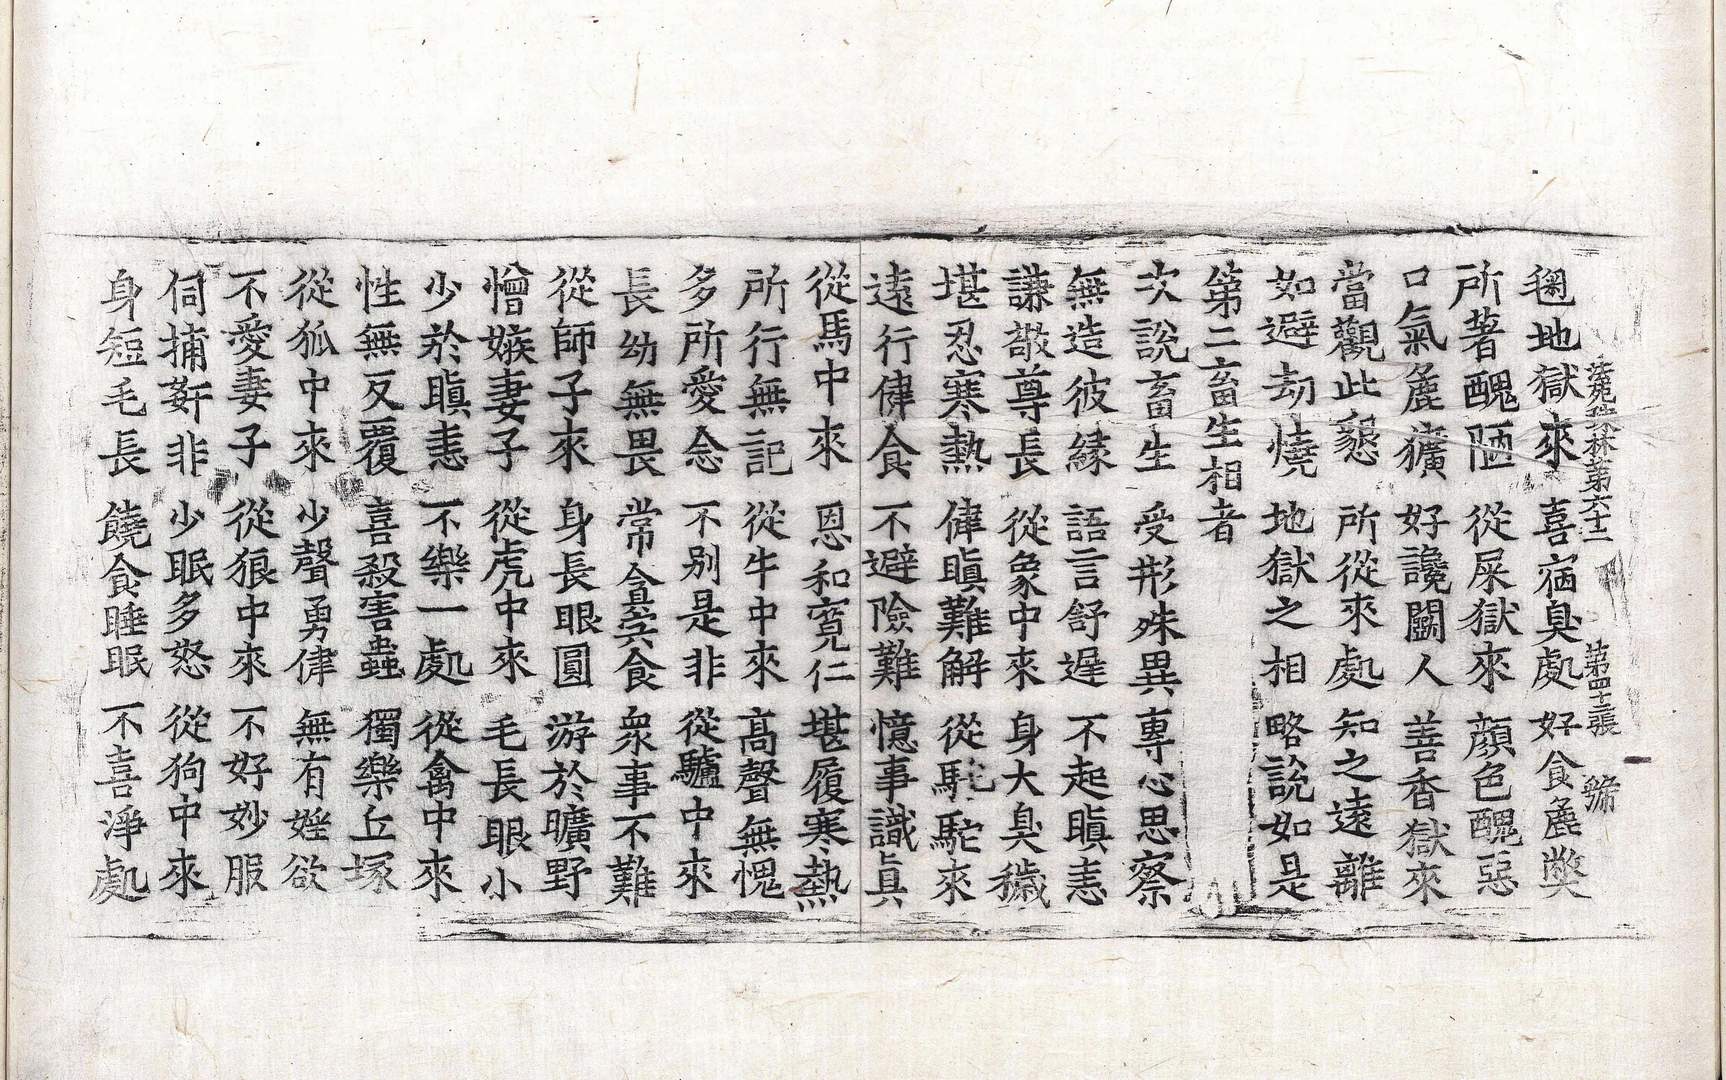 法苑珠林第六十二　第四十三張　緜
毱地獄來　喜宿臭處　好食麁弊
所著醜陋　從屎獄來　顏色醜惡
口氣麁獷　好讒鬪人　善香獄來
當觀此懇　所從來處　知之遠離
如避劫燒　地獄之相　略說如是
第二畜生相者
次說畜生　受形殊異　專心思察
無造彼緣　語言舒遲　不起瞋恚
謙敬尊長　從象中來　身大臭穢
堪忍寒熱　健瞋難解　從馲駝來
遠行健食　不避險難　憶事識真
從馬中來　恩和寬仁　堪履寒熱
所行無記　從牛中來　高聲無愧
多所愛念　不別是非　從驢中來
長幼無畏　常貪宍食　衆事不難
從師子來　身長眼圓　游於曠野
憎嫉妻子　從虎中來　毛長眼小
少於瞋恚　不樂一處　從禽中來
性無反覆　喜殺害蟲　獨樂丘塚
從狐中來　少聲勇健　無有婬欲
不愛妻子　從狼中來　不好妙服
伺捕姧非　少眠多怒　從狗中來
身短毛長　饒食睡眠　不喜淨處